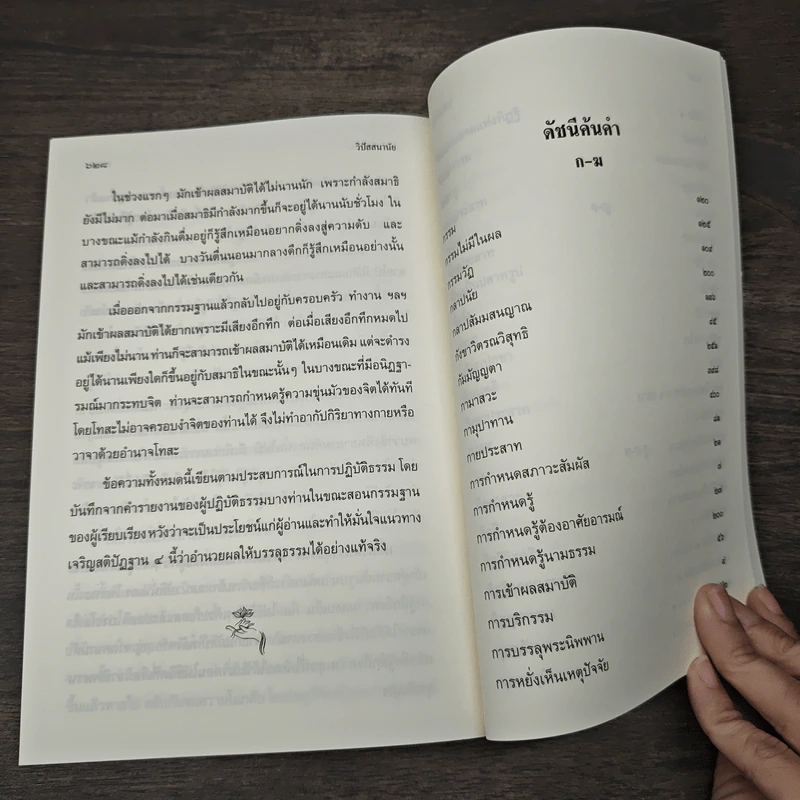 ๖๒๘
วิปัสสนานัย
ในช่วงแรกๆ มักเข้าผลสมาบัติได้ไม่นานนัก เพราะกำลังสมาธิ
ยังมีไม่มาก ต่อมาเมื่อสมาธิมีกำลังมากขึ้นก็จะอยู่ได้นานนับชั่วโมง ใน
บางขณะแม้กำลังกินดื่มอยู่ก็รู้สึกเหมือนอยากดิ่งลงสู่ความดับ และ
สามารถดิ่งลงไปได้ บางวันตื่นนอนมากลางดึกก็รู้สึกเหมือนอย่างนั้น
และสามารถดิ่งลงไปได้เช่นเดียวกัน
เมื่อออกจากกรรมฐานแล้วกลับไปอยู่กับครอบครัว ทำงาน ฯลฯ
มักเข้าผลสมาบัติได้ยากเพราะมีเสียงอึกทึก ต่อเมื่อเสียงอึกทึกหมดไป
แม้เพียงไม่นาน ท่านก็จะสามารถเข้าผลสมาบัติได้เหมือนเดิม แต่จะดำรง
อยู่ได้นานเพียงใดก็ขึ้นอยู่กับสมาธิในขณะนั้นๆ ในบางขณะที่มีอนิฏฐา-
รมณ์มากระทบจิต ท่านจะสามารถกำหนดรู้ความขุ่นมัวของจิตได้ทันที
โดยโทสะไม่อาจครอบงำจิตของท่านได้ จึงไม่ทำอากัปกิริยาทางกายหรือ
วาจาด้วยอำนาจโทสะ
ข้อความทั้งหมดนี้เขียนตามประสบการณ์ในการปฏิบัติธรรม โดย
บันทึกจากคำรายงานของผู้ปฏิบัติธรรมบางท่านในขณะสอนกรรมฐาน
ของผู้เรียบเรียง หวังว่าจะเป็นประโยชน์แก่ผู้อ่านและทำให้มั่นใจแนวทาง
เจริญสติปัฏฐาน ๔ นี้ว่าอำนวยผลให้บรรลุธรรมได้อย่างแท้จริง
ดัชนีค้นคำ
ก-ฆ
กรรม ๑๒๐
กรรมไม่มีในผล ๑๒๕
กรรมวัฏ ๑๐๔
กลาปนัย ๒๐๐
กลาปสัมมสนญาณ
กังขาวิตรณวิสุทธิ
กัมมัญญตา
กามาสวะ
กามุปาทาน
กายประสาท
การกำหนดสภาวะสัมผัส
การกำหนดรู้
การกำหนดรู้ต้องอาศัยอารมณ์
การกำหนดรู้นามธรรม
การเข้าผลสมาบัติ
การบริกรรม
การบรรลุพระนิพพาน
การหยั่งเห็นเหตุปัจจัย